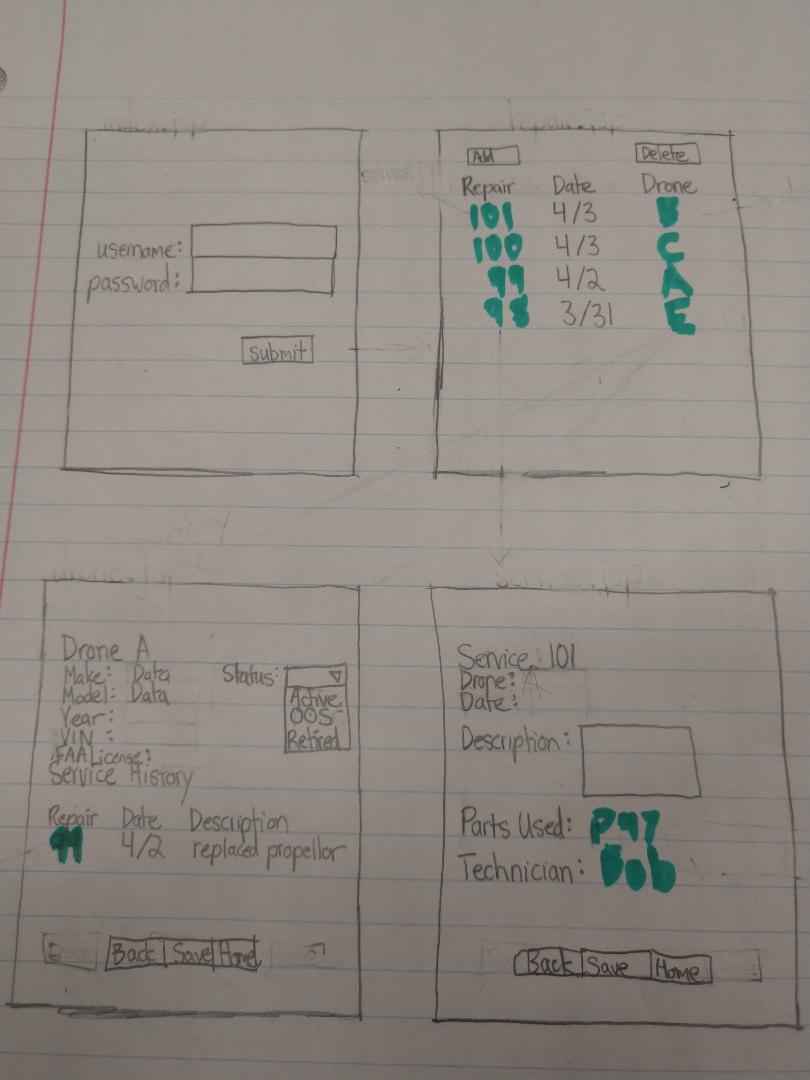 username:
password:
submit
Add Delete
Repair Date Drone
101 4/3 B
100 4/3 C
99 4/2 A
98 3/31 E
Drone A
Make: Data
Model: Data
Year:
VIN :
FAA License:
Status:
Active
OOS
Retired
Service History
Repair Date Description
99 4/2 replaced propellor
Back Save Home
Service 101
Drone: A
Date:
Description:
Parts Used: P97
Technician: Bob
Back Save Home